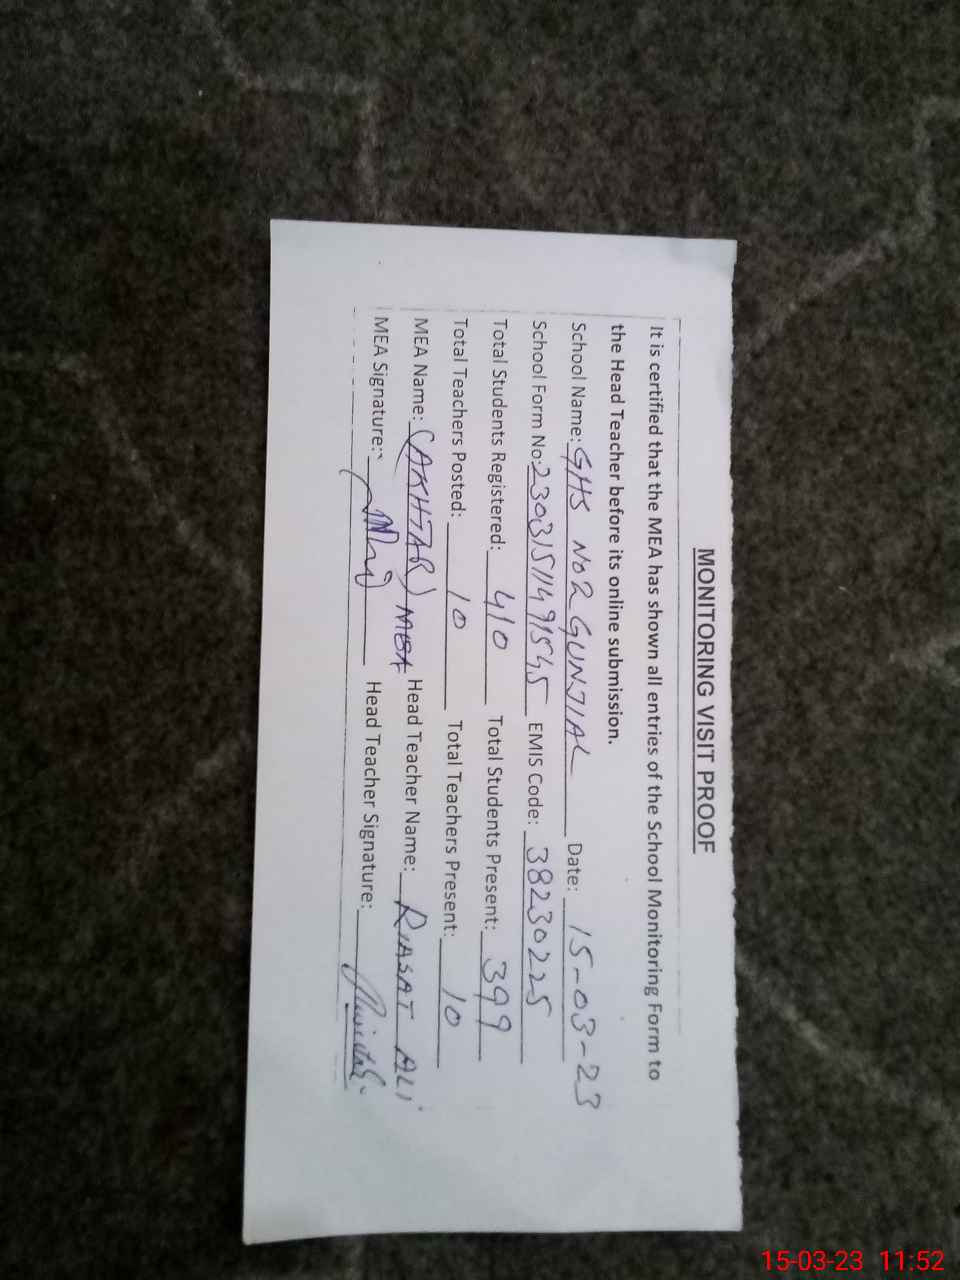 MONITORING VISIT PROOF
It is certified that the MEA has shown all entries of the School Monitoring Form to
the Head Teacher before its online submission.
School Name: GHS NO2 GUNJIAL Date: 15-03-23
School Form No: 23031511491545 EMIS Code: 38230225
Total Students Registered: 410 Total Students Present: 399
Total Teachers Posted: 10 Total Teachers Present: 10
MEA Name: (AKHTAR) MEA Head Teacher Name: RIASAT ALI
MEA Signature: Head Teacher Signature:
15-03-23 11:52